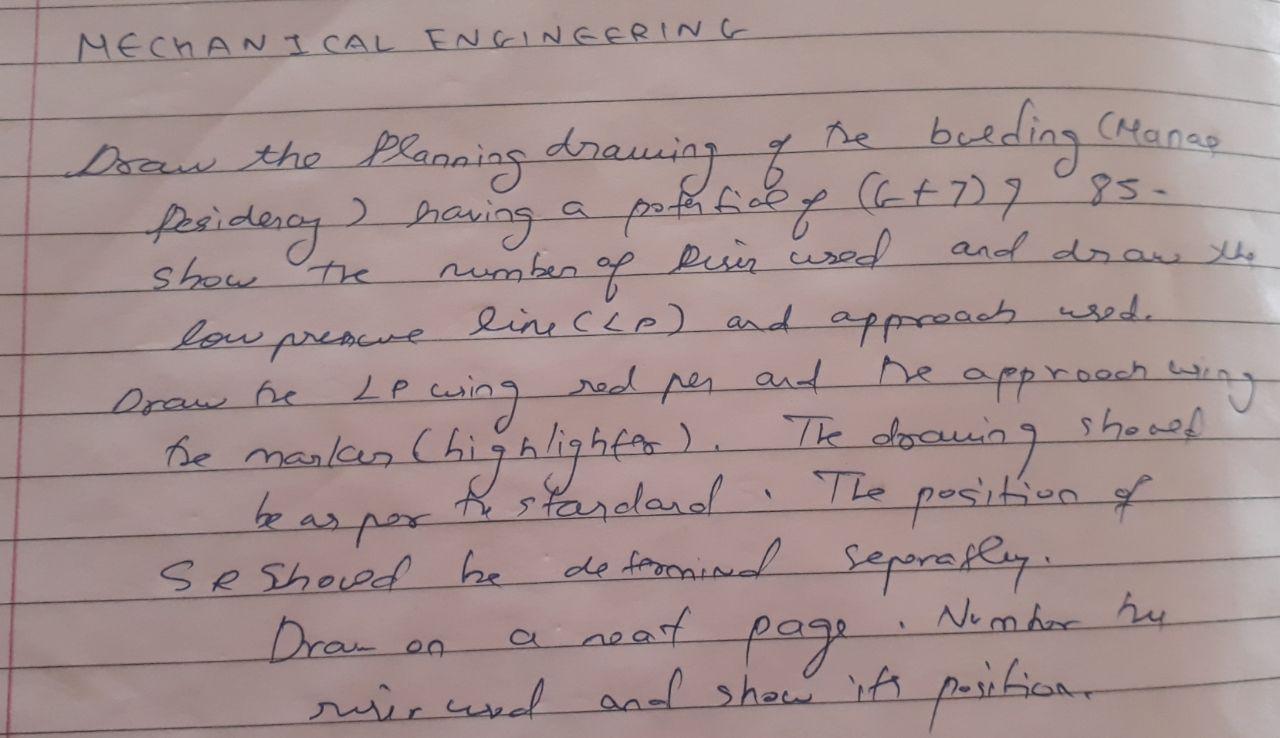 MECHANICAL ENGINEERING
Draw the Planning drawing of the building (Manas
Residency) having a potential of (G+7) 85-
show the number of Riser used and draw the
low pressure line (LP) and approach used.
Draw the LP using red pen and the approach using
the marker (highlighter). The drawing should
be as per the standard. The position of
SR should be determined separatly.
Draw on a neat page. Number the
riser used and show its position.